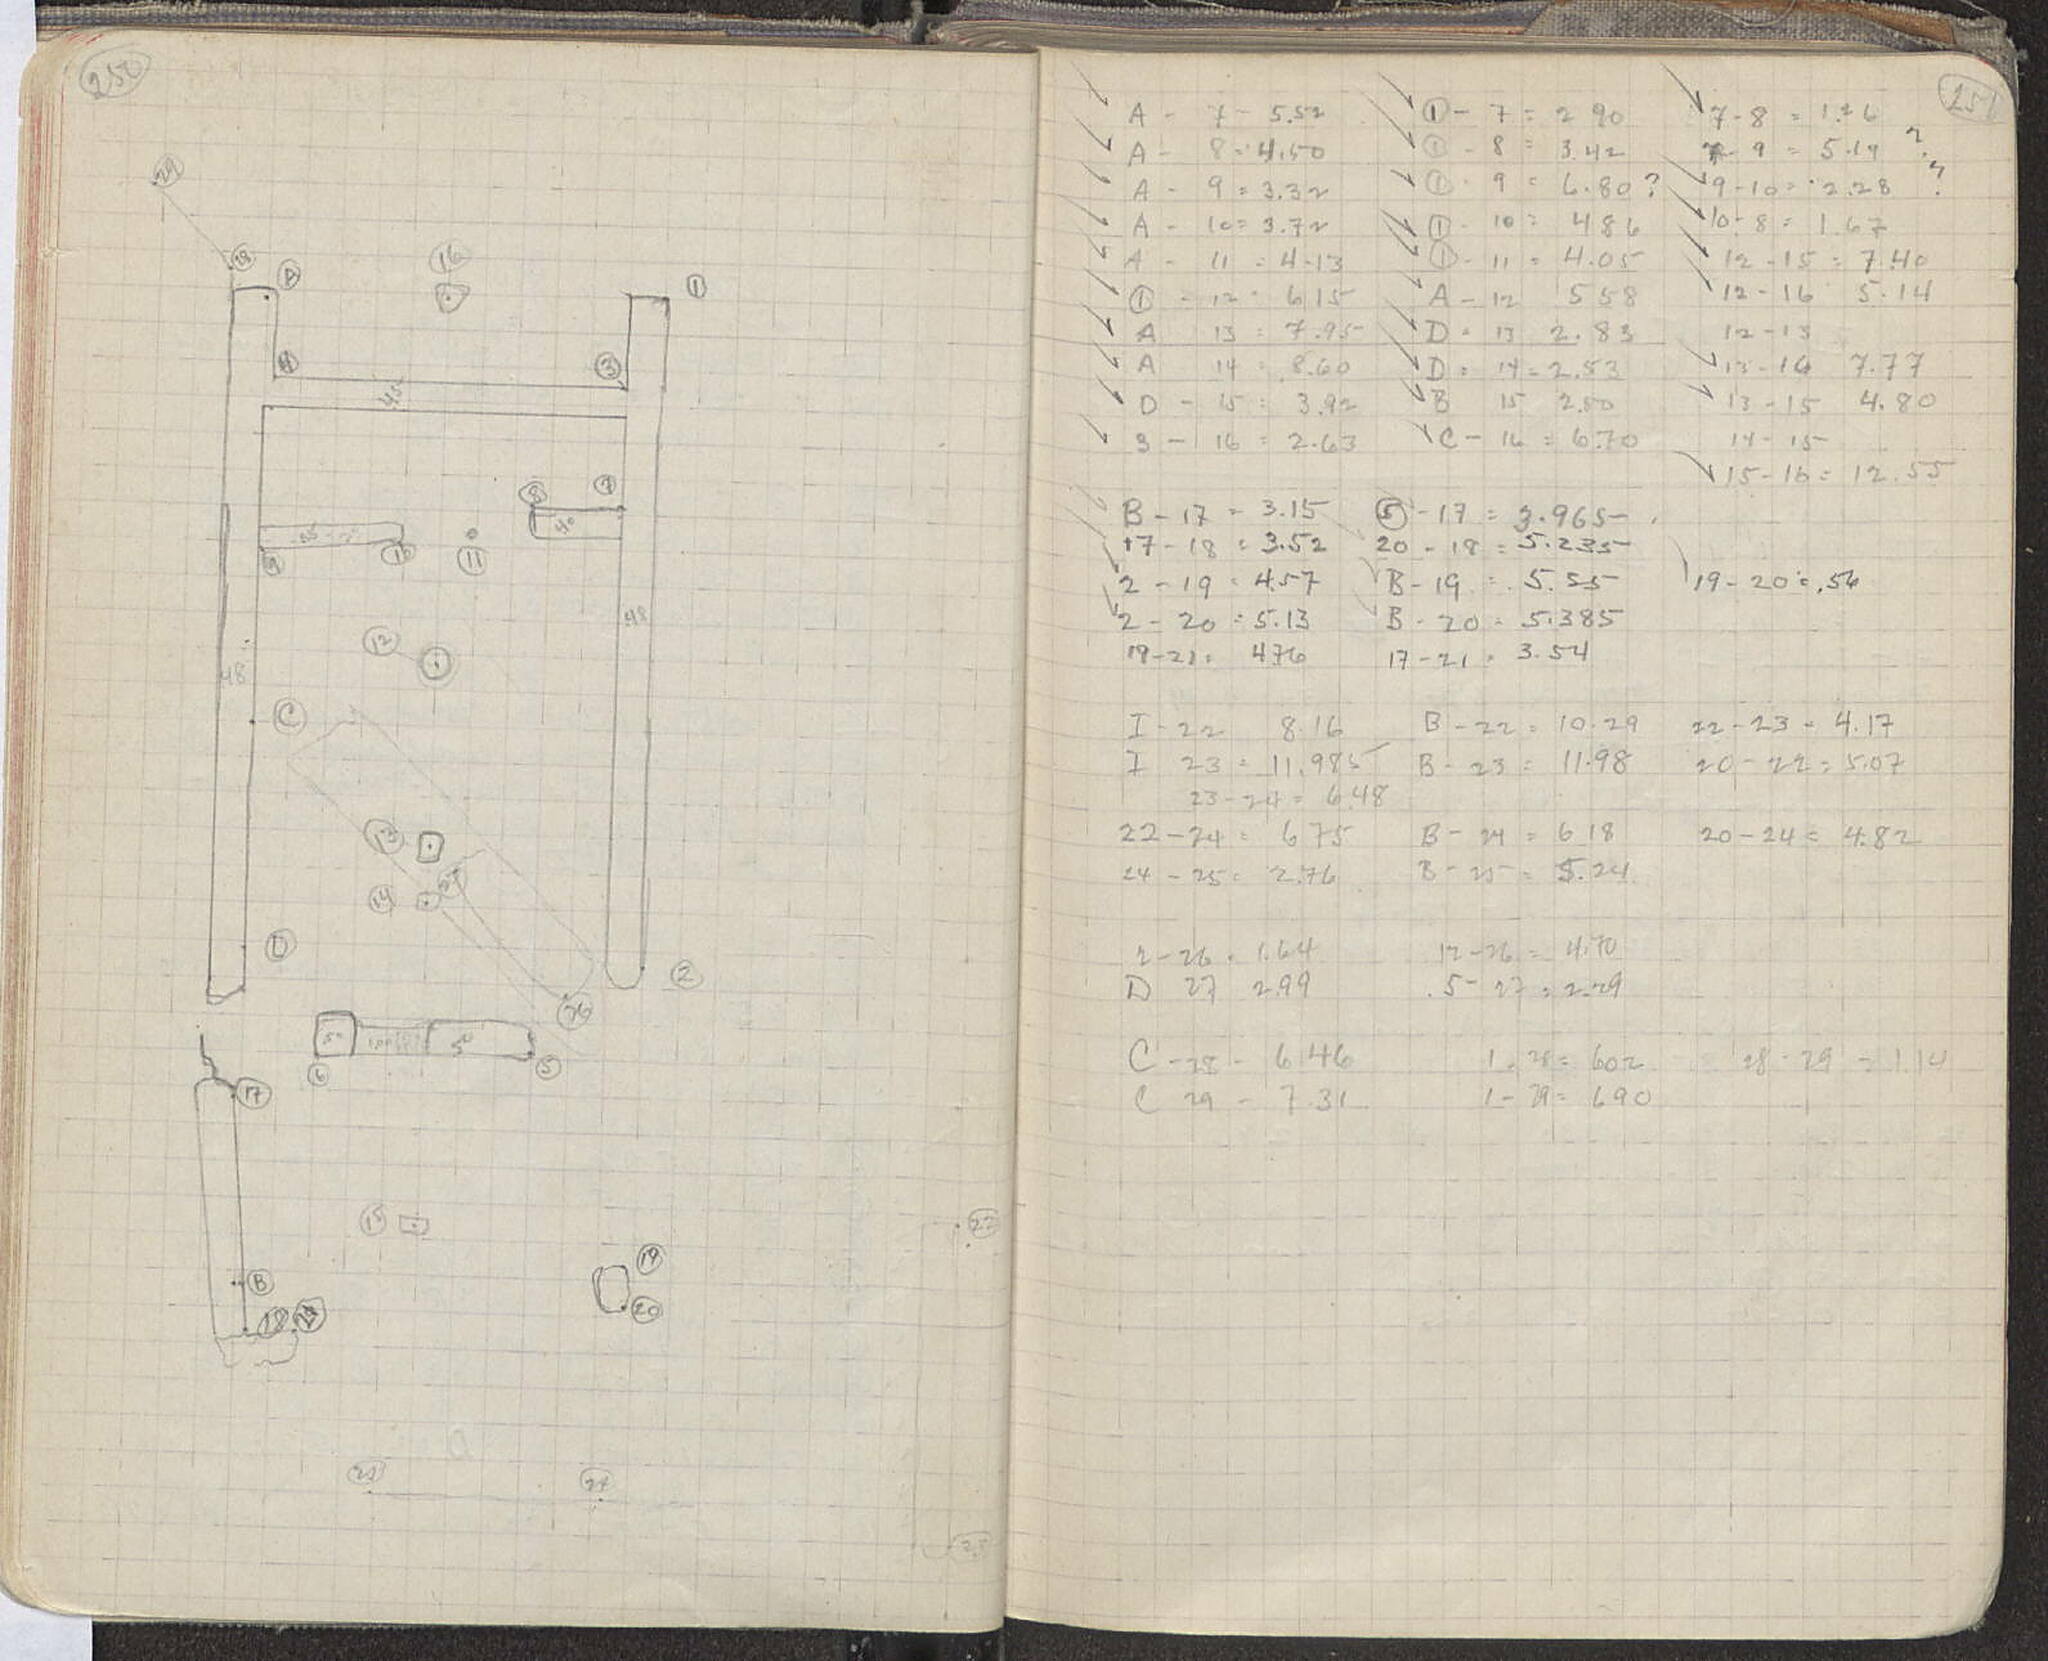 250
29
28 A
16
1
4
3
.45
8 7
40
9 10 11
12
.48
48
C
13
14
D
2
26
50 50
6 5
17
15
22
19
B
20
18
23 24
251
A - 7 - 5.52 ① - 7 = 2 90 7-8 = 1.26
A - 8 = 4.50 ① - 8 = 3.42 9 = 5.19 ?
A - 9 = 3.32 ① - 9 = 6.80 ? 9-10 = 2.28 ?
A - 10 = 3.72 ① - 10 = 4 86 10-8 = 1.67
A - 11 = 4.13 ① - 11 = 4.05 12-15 = 7.40
① - 12 = 6.15 A - 12 5 58 12-16 5.14
A 13 = 7.95 D - 13 2.83 12-13
A 14 = 8.60 D = 14 = 2.53 13-16 7.77
D - 15 = 3.92 B 15 2.80 13-15 4.80
3 - 16 = 2.63 C - 16 = 6.70 14-15
15-16 = 12.55
B - 17 = 3.15 ⑤ - 17 = 3.965
17 - 18 = 3.52 20 - 18 = 5.235
2 - 19 = 4.57 B - 19 = 5.55 19 - 20 = .56
2 - 20 = 5.13 B - 20 = 5.385
19-21 = 476 17-21 = 3.54
I - 22 8.16 B - 22 = 10.29 22-23 = 4.17
I 23 = 11.985 B - 23 = 11.98 20-22 = 5.07
23-24 = 6.48
22-24 = 6 75 B - 24 = 6 18 20-24 = 4.82
24 - 25 = 2.76 B - 25 = 5.24
2-26 = 1.64 12-26 = 4.70
D 27 2.99 5-27 = 2.29
C - 28 - 6.46 1-28 = 602 28-29 = 1.14
C 29 - 7.31 1-29 = 690